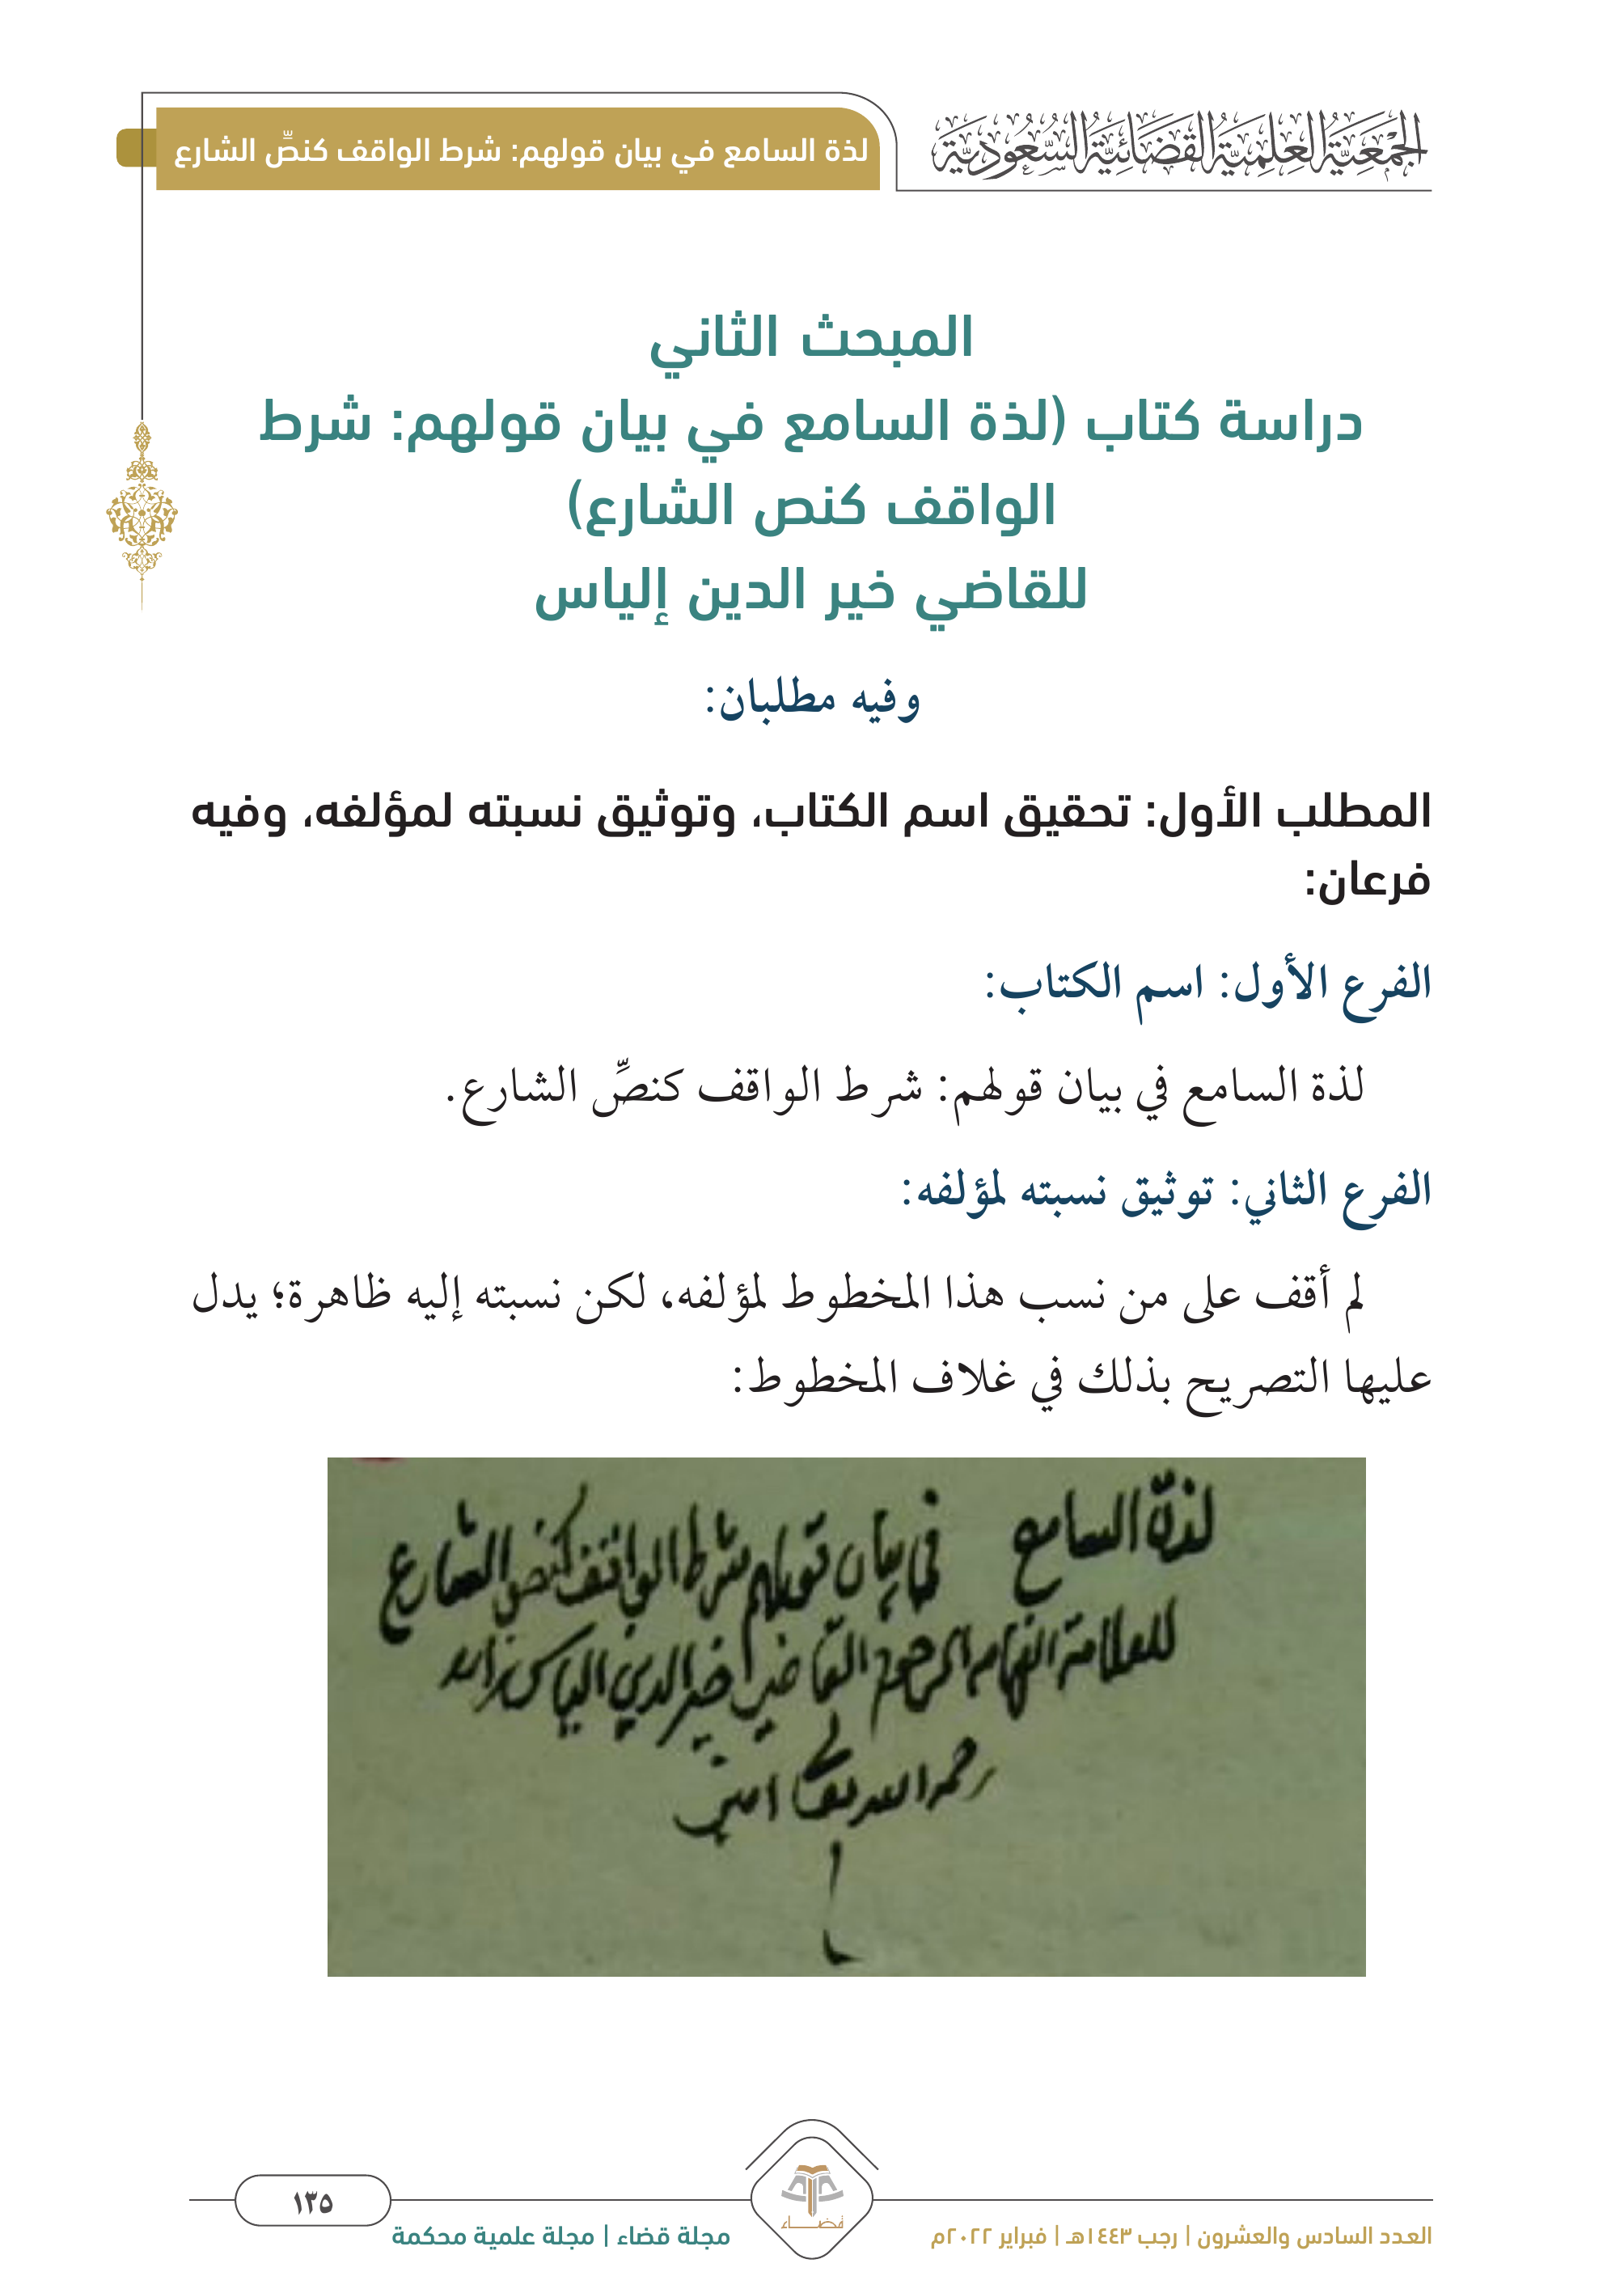 الجمعية العلمية القضائية السعودية
لذة السامع في بيان قولهم: شرط الواقف كنصِّ الشارع
المبحث الثاني
دراسة كتاب (لذة السامع في بيان قولهم: شرط
الواقف كنص الشارع)
للقاضي خير الدين إلياس
وفيه مطلبان:
المطلب الأول: تحقيق اسم الكتاب، وتوثيق نسبته لمؤلفه، وفيه
فرعان:
الفرع الأول: اسم الكتاب:
لذة السامع في بيان قولهم: شرط الواقف كنصِّ الشارع.
الفرع الثاني: توثيق نسبته لمؤلفه:
لم أقف على من نسب هذا المخطوط لمؤلفه، لكن نسبته إليه ظاهرة؛ يدل
عليها التصريح بذلك في غلاف المخطوط:
لذة السامع في بيان قولهم شرط الواقف كنص الشارع
للعلامة الفهامة المرحوم القاضي خير الدين الياس زاده
رحمه الله تعالى امين
قضاء
العدد السادس والعشرون | رجب ١٤٤٣هـ | فبراير ٢٠٢٢م
مجلة قضاء | مجلة علمية محكمة
١٣٥